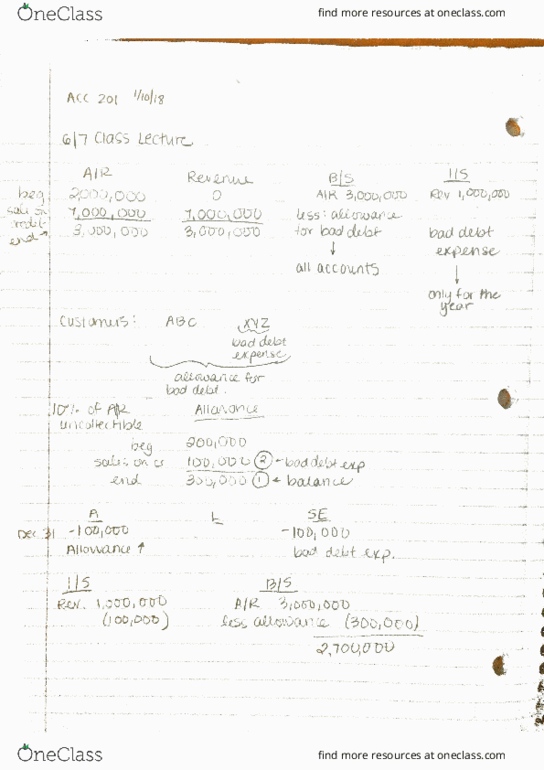 OneClass find more resources at oneclass.com
ACC 201 1/10/18
6/7 Class Lecture
A/R Revenue B/S I/S
beg 2,000,000 0 A/R 3,000,000 Rev 1,000,000
sales on 1,000,000 1,000,000 less: allowance
credit for bad debt bad debt
end → 3,000,000 3,000,000 ↓ expense
all accounts ↓
only for the
year
Customers: ABC XYZ
bad debt
expense
allowance for
bad debt.
10% of A/R Allowance
uncollectible
beg 200,000
sales on cr 100,000 ② ← bad debt exp
end 300,000 ① ← balance
A L SE
Dec 31 -100,000 -100,000
Allowance ↑ bad debt exp.
I/S B/S
Rev. 1,000,000 A/R 3,000,000
(100,000) less allowance (300,000)
2,700,000
OneClass find more resources at oneclass.com